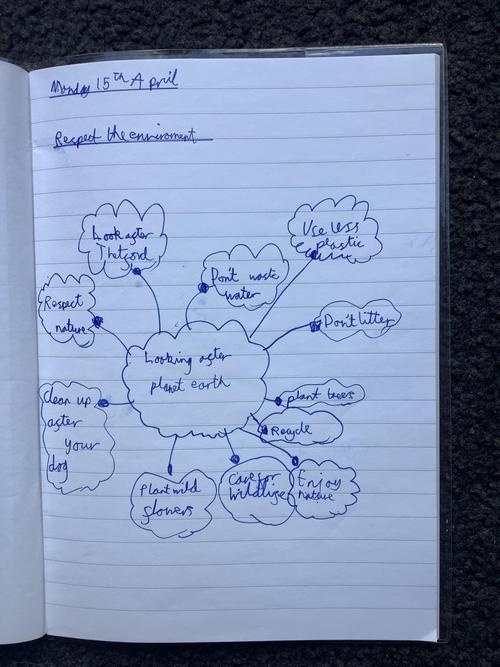 Monday 15th April
Respect the enviroment
Look after
Thetford
Use less
plastic
Don't waste
water
Respect
nature
Don't litter
Looking after
planet earth
Clean up
after
your
dog
plant trees
Recycle
Plant wild
flowers
Care for
wildlife
Enjoy
nature